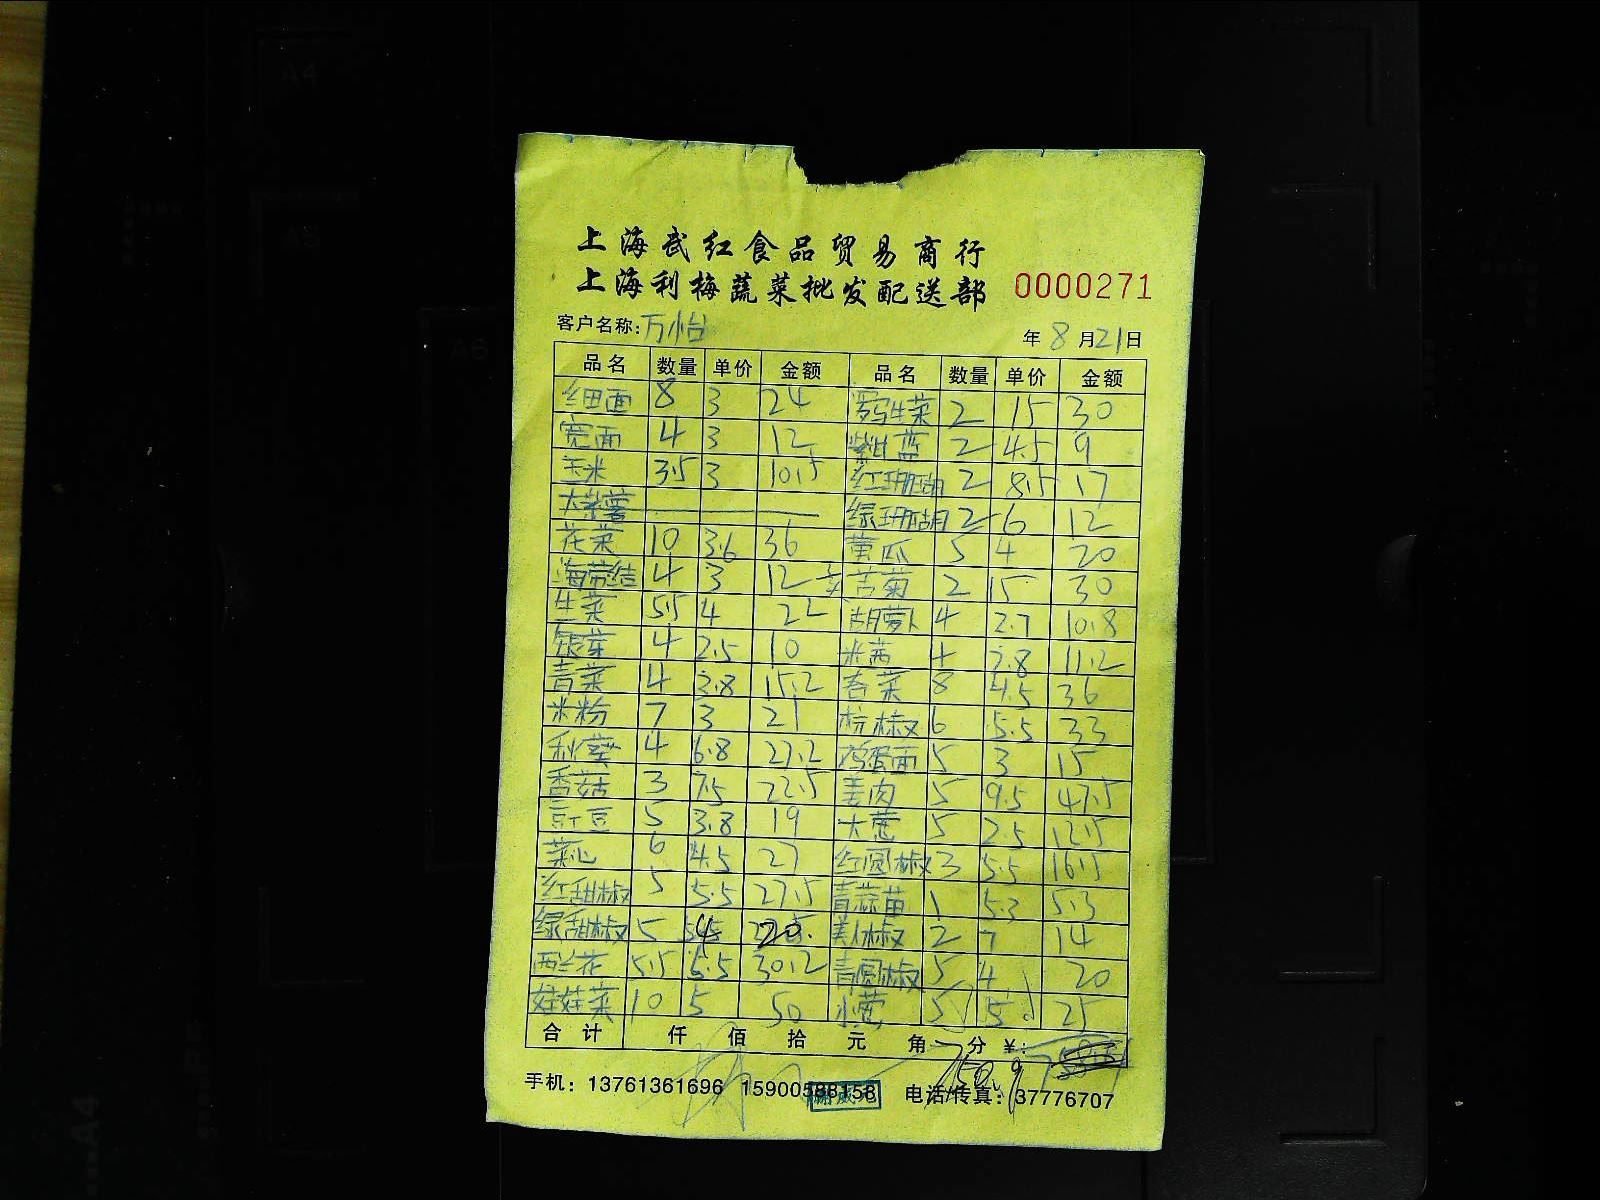 上海武红食品贸易商行
上海利梅蔬菜批发配送部 0000271
客户名称:万怡 年8月21日
品名 数量 单价 金额 品名 数量 单价 金额
细面 8 3 24 罗马生菜 2 15 30
宽面 4 3 12 紫甘蓝 2 4.5 9
玉米 3.5 3 10.5 红珊瑚 2 8.5 17
大紫薯 绿珊瑚 2 6 12
花菜 10 3.6 36 黄瓜 5 4 20
海带结 4 3 12 苦菊 2 15 30
生菜 5.5 4 22 胡萝卜 4 2.7 10.8
银芽 4 2.5 10 米茜 4 2.8 11.2
青菜 4 3.8 15.2 香菜 8 4.5 36
米粉 7 3 21 杭椒 6 5.5 33
秋葵 4 6.8 27.2 鸡蛋面 5 3 15
香菇 3 7.5 22.5 姜肉 5 9.5 47.5
豇豆 5 3.8 19 大葱 5 2.5 12.5
菜心 6 4.5 27 红圆椒 3 5.5 16.5
红甜椒 5 5.5 27.5 青蒜苗 1 5.3 5.3
绿甜椒 5 4 20. 美人椒 2 7 14
西兰花 5.5 5.5 30.2 青圆椒 5 4 20
娃娃菜 10 5 50 小葱 5 5 25
合计 仟 佰 拾 元 角 分 ¥:
750.9
手机:13761361696 15900588158 电话/传真:37776707